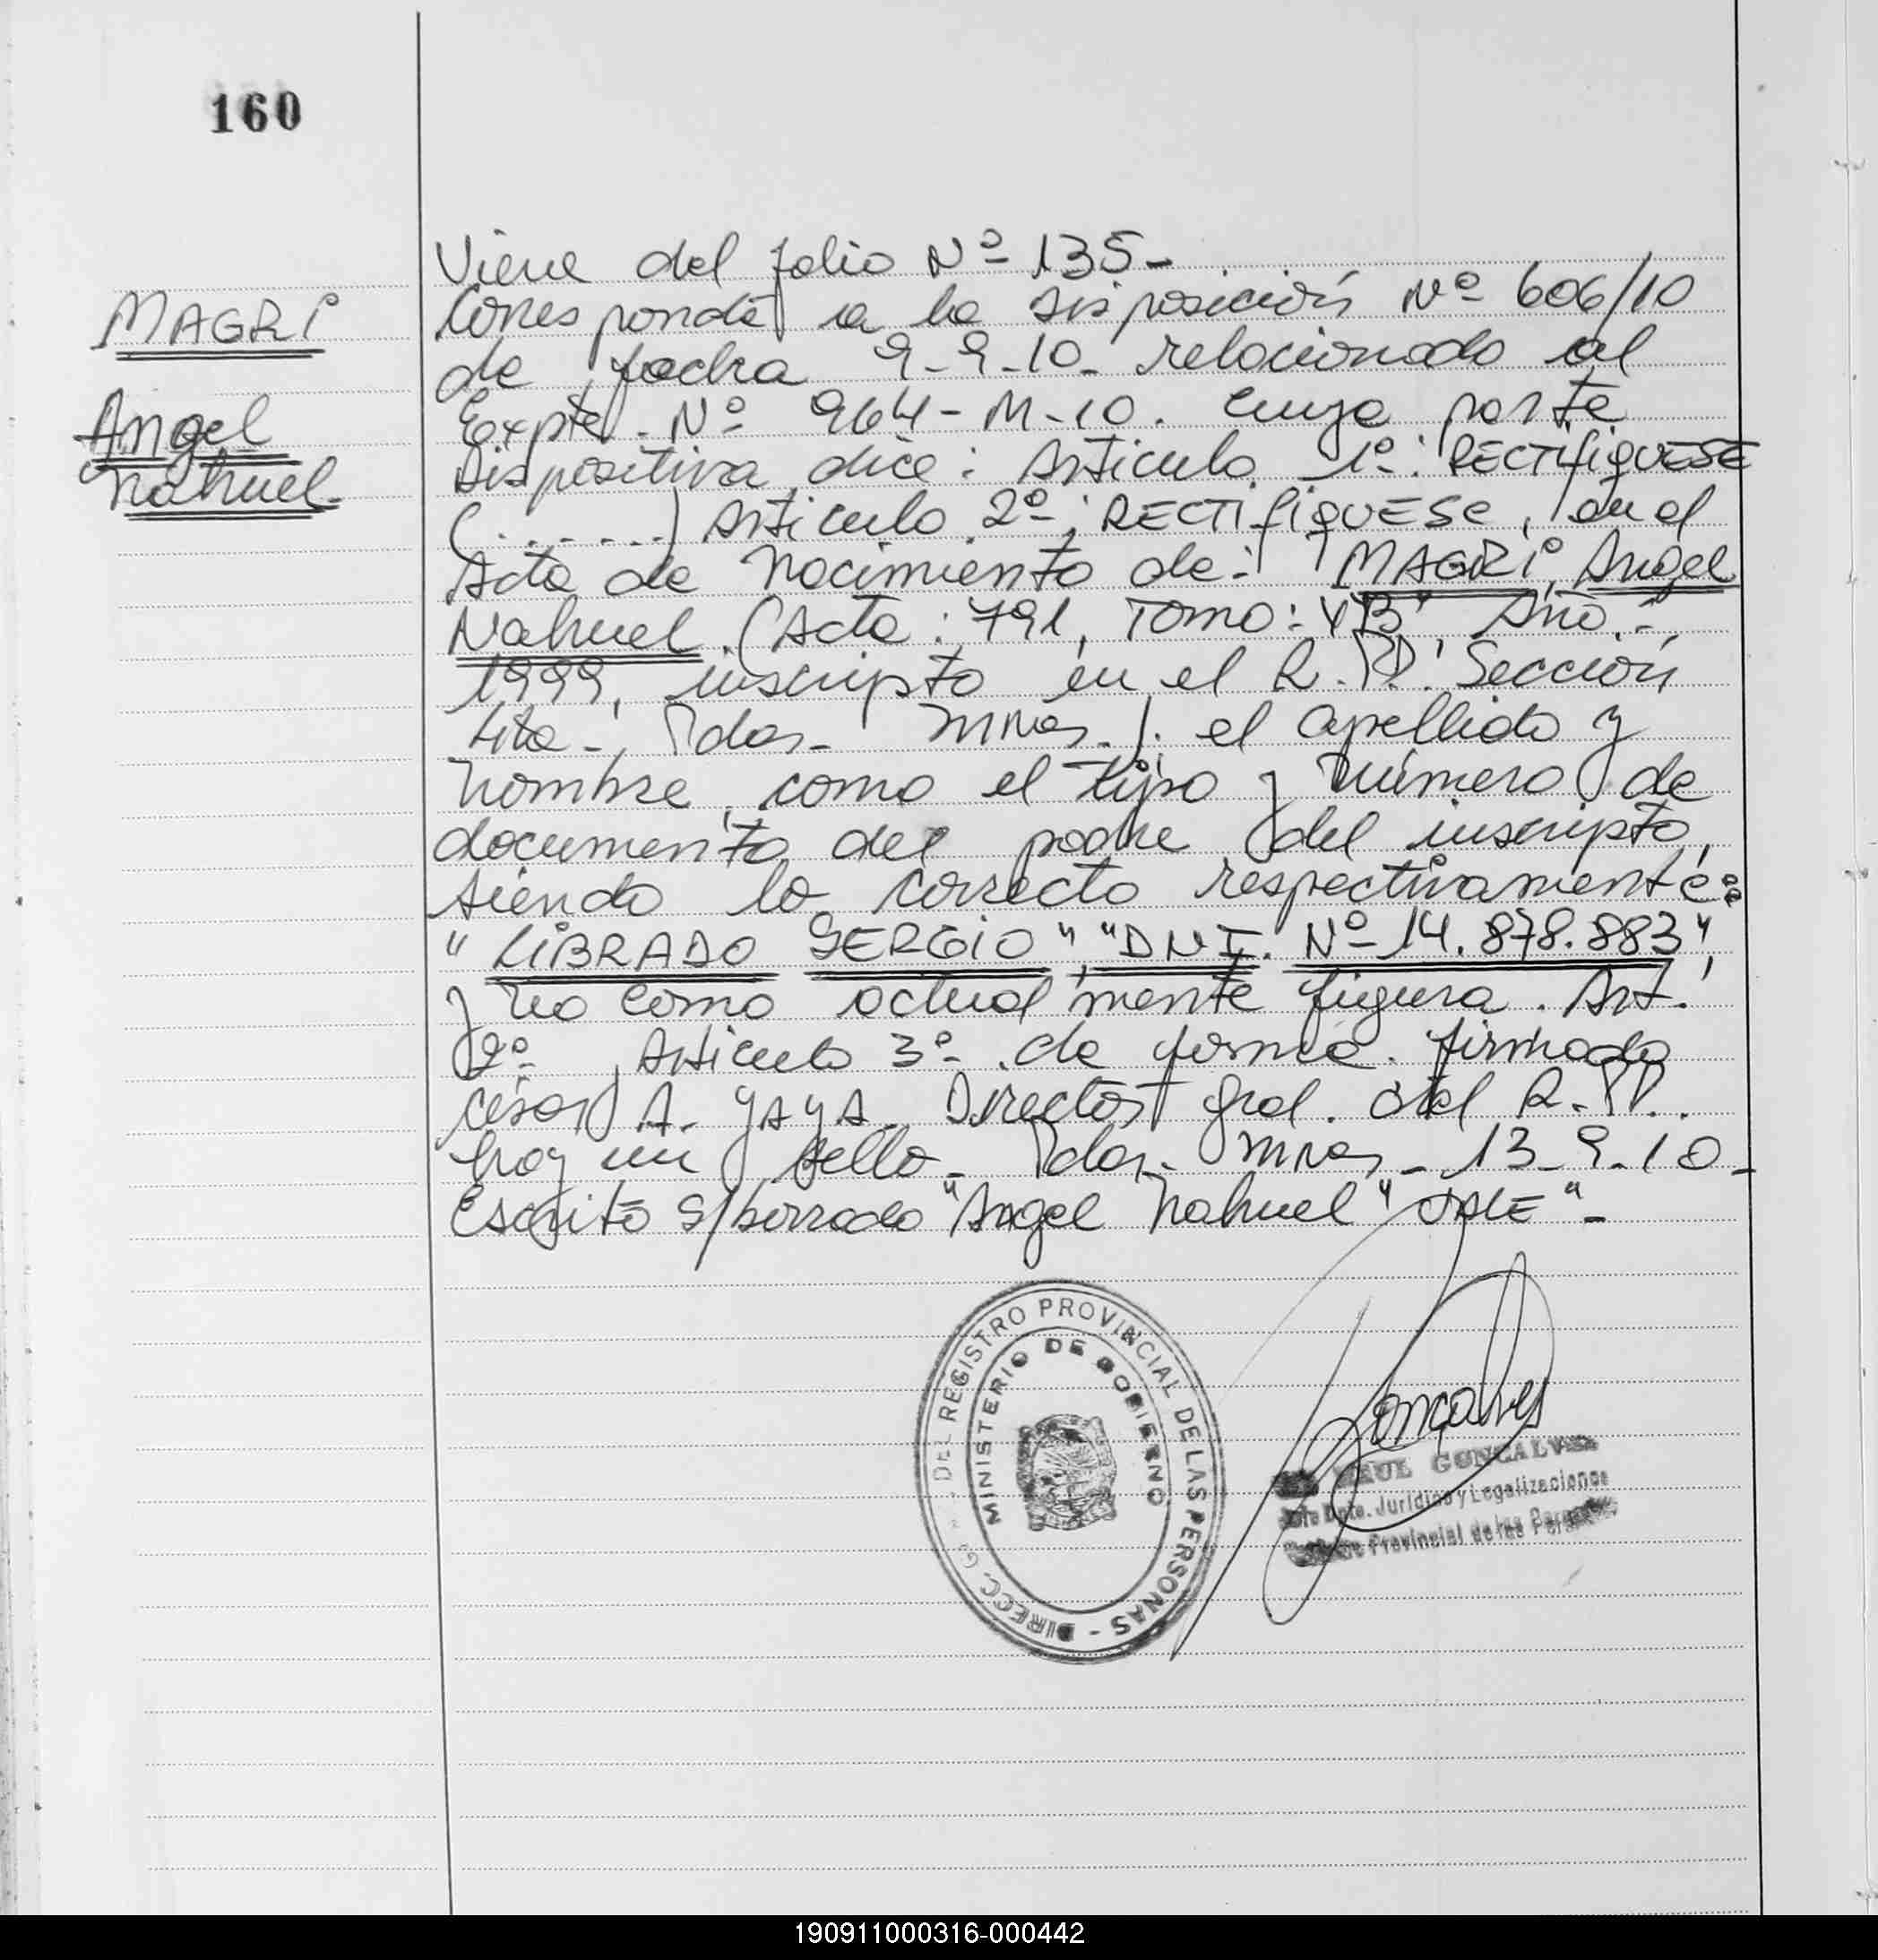 160
MAGRI
Angel
Nahuel.
Viene del folio Nº 135-
Corresponde a la disposición Nº 606/10
de fecha 9-9-10- relacionado al
Expte. Nº 964-M-10. cuya parte
Dispositiva dice: Articulo 1º: RECTIFIQUESE
(.......) Articulo 2º: RECTIFIQUESE, en el
Acta de Nacimiento de: MAGRI, Angel
Nahuel. (Acta: 791, Tomo: "B" Año.-
1999, inscripto en el R.P.P. Sección
4ta-, Pdas- Mnes.). el apellido y
nombre, como el tipo y número de
documento del padre del inscripto,
siendo lo correcto respectivamente:
"LIBRADO SERGIO", "DNI. Nº 14.878.883",
y no como actualmente figura. Art.
2º Articulo 3º de forma. firmado
César A. YAYA. Director Gral. del R.P.P..
hay un sello- Pdas- Mnes- 13-9-10-
Escrito s/borrado "Angel Nahuel" "VALE"-
DIRECC. G DEL REGISTRO PROVINCIAL DE LAS PERSONAS -
MINISTERIO DE GOBIERNO
Goncalves
RAUL GONCALVES
Jefe Dpto. Juridico y Legalizaciones
Provincial de las Personas
190911000316-000442